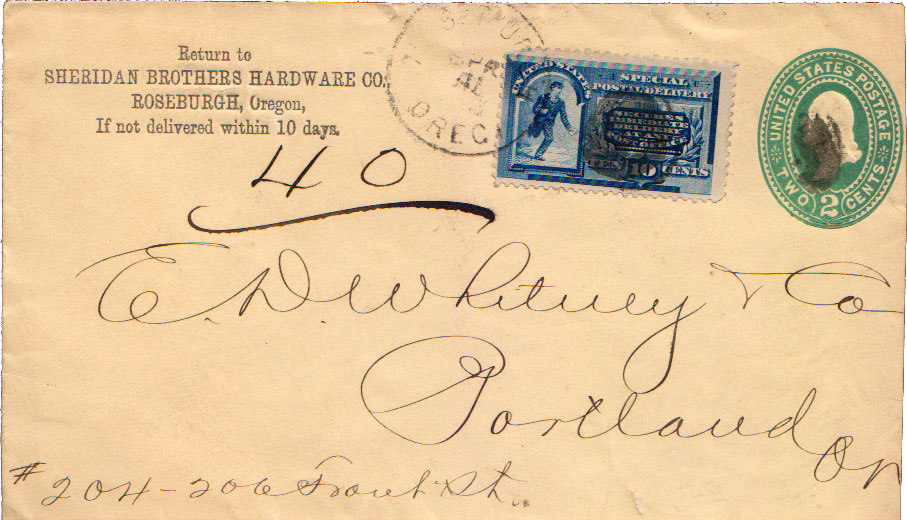 Return to
SHERIDAN BROTHERS HARDWARE CO.
ROSEBURGH, Oregon,
If not delivered within 10 days.
OREG
UNITED STATES
SPECIAL
POSTAL DELIVERY
SECURES
IMMEDIATE
DELIVERY
AT ANY
POST OFFICE
TEN 10 CENTS
UNITED STATES POSTAGE
TWO 2 CENTS
40
E. D. Whitney & Co
Portland
Or
# 204-206 Front St.